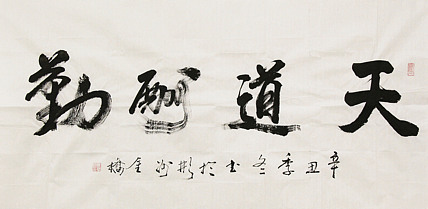 天道酬勤
辛丑季冬书於彬金橋